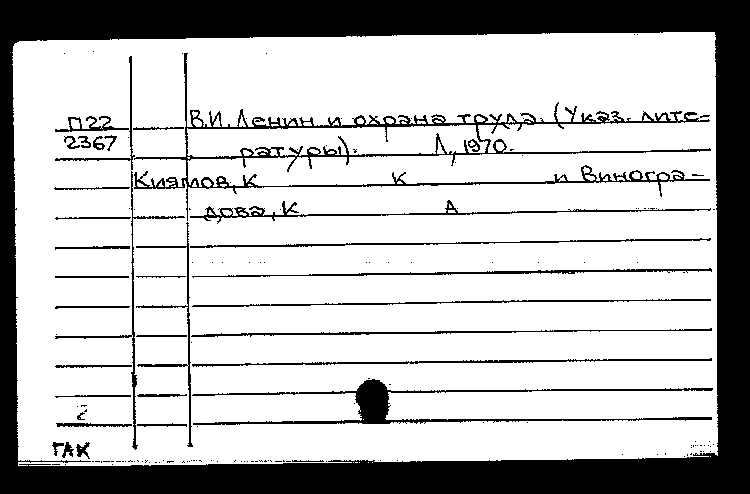 П22 В.И. Ленин и охрана труда. (Указ. лите-
2367 ратуры). Л., 1970.
Киямов, К К и Виногра-
дова, К А
2
ГАК